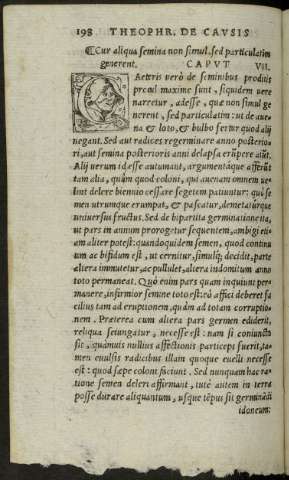 198 THEOPHR. DE CAVSIS
¶Cur aliqua semina non simul, sed particulatim
generent. CAPVT VII.
CAeteris verò de seminibus proditis
procul maxime sunt, siquidem vere
narretur, adesse, quæ non simul ge
nerent, sed particulatim: ut de aue-
na & loto, & bulbo fertur quod alij
negant. Sed aut radices regerminare anno posterio-
ri, aut semina posterioris anni delapsa erũpere aiũt.
Alij verum id esse autumant, argumentaque afferũt
tam alia, quàm quod coloni, qui auenam omnem ue
lint delere biennio cessare segetem patiuntur: qui se
men utrumque erumpat, & pascatur, demetaturque
uniuersus fructus. Sed de bipartita germinatione ita,
ut pars in annum prorogetur sequentem, ambigi eti-
am aliter potest: quandoquidem semen, quod continu
um ac bifidum est, ut cernitur, simulque decidit, parte
altera immutetur, ac pullulet, altera indomitum anno
toto permaneat. Quò enim pars quam inquiunt per-
manere, infirmior semine toto est: eò affici deberet fa
cilius tam ad eruptionem, quàm ad totam corruptio-
nem. Præterea cum altera pars germen ediderit,
reliqua seiungatur, necesse est: nam si coniuncta
sit, quamuis nullius affectionis particeps fuerit, ta-
men euulsis radicibus illam quoque euelli necesse
est: quod sæpe coloni faciunt. Sed nunquam hac ra-
tione semen deleri affirmant, tutè autem in terra
posse durare aliquantum, usque tẽpus sit germinãdi
idoneum: